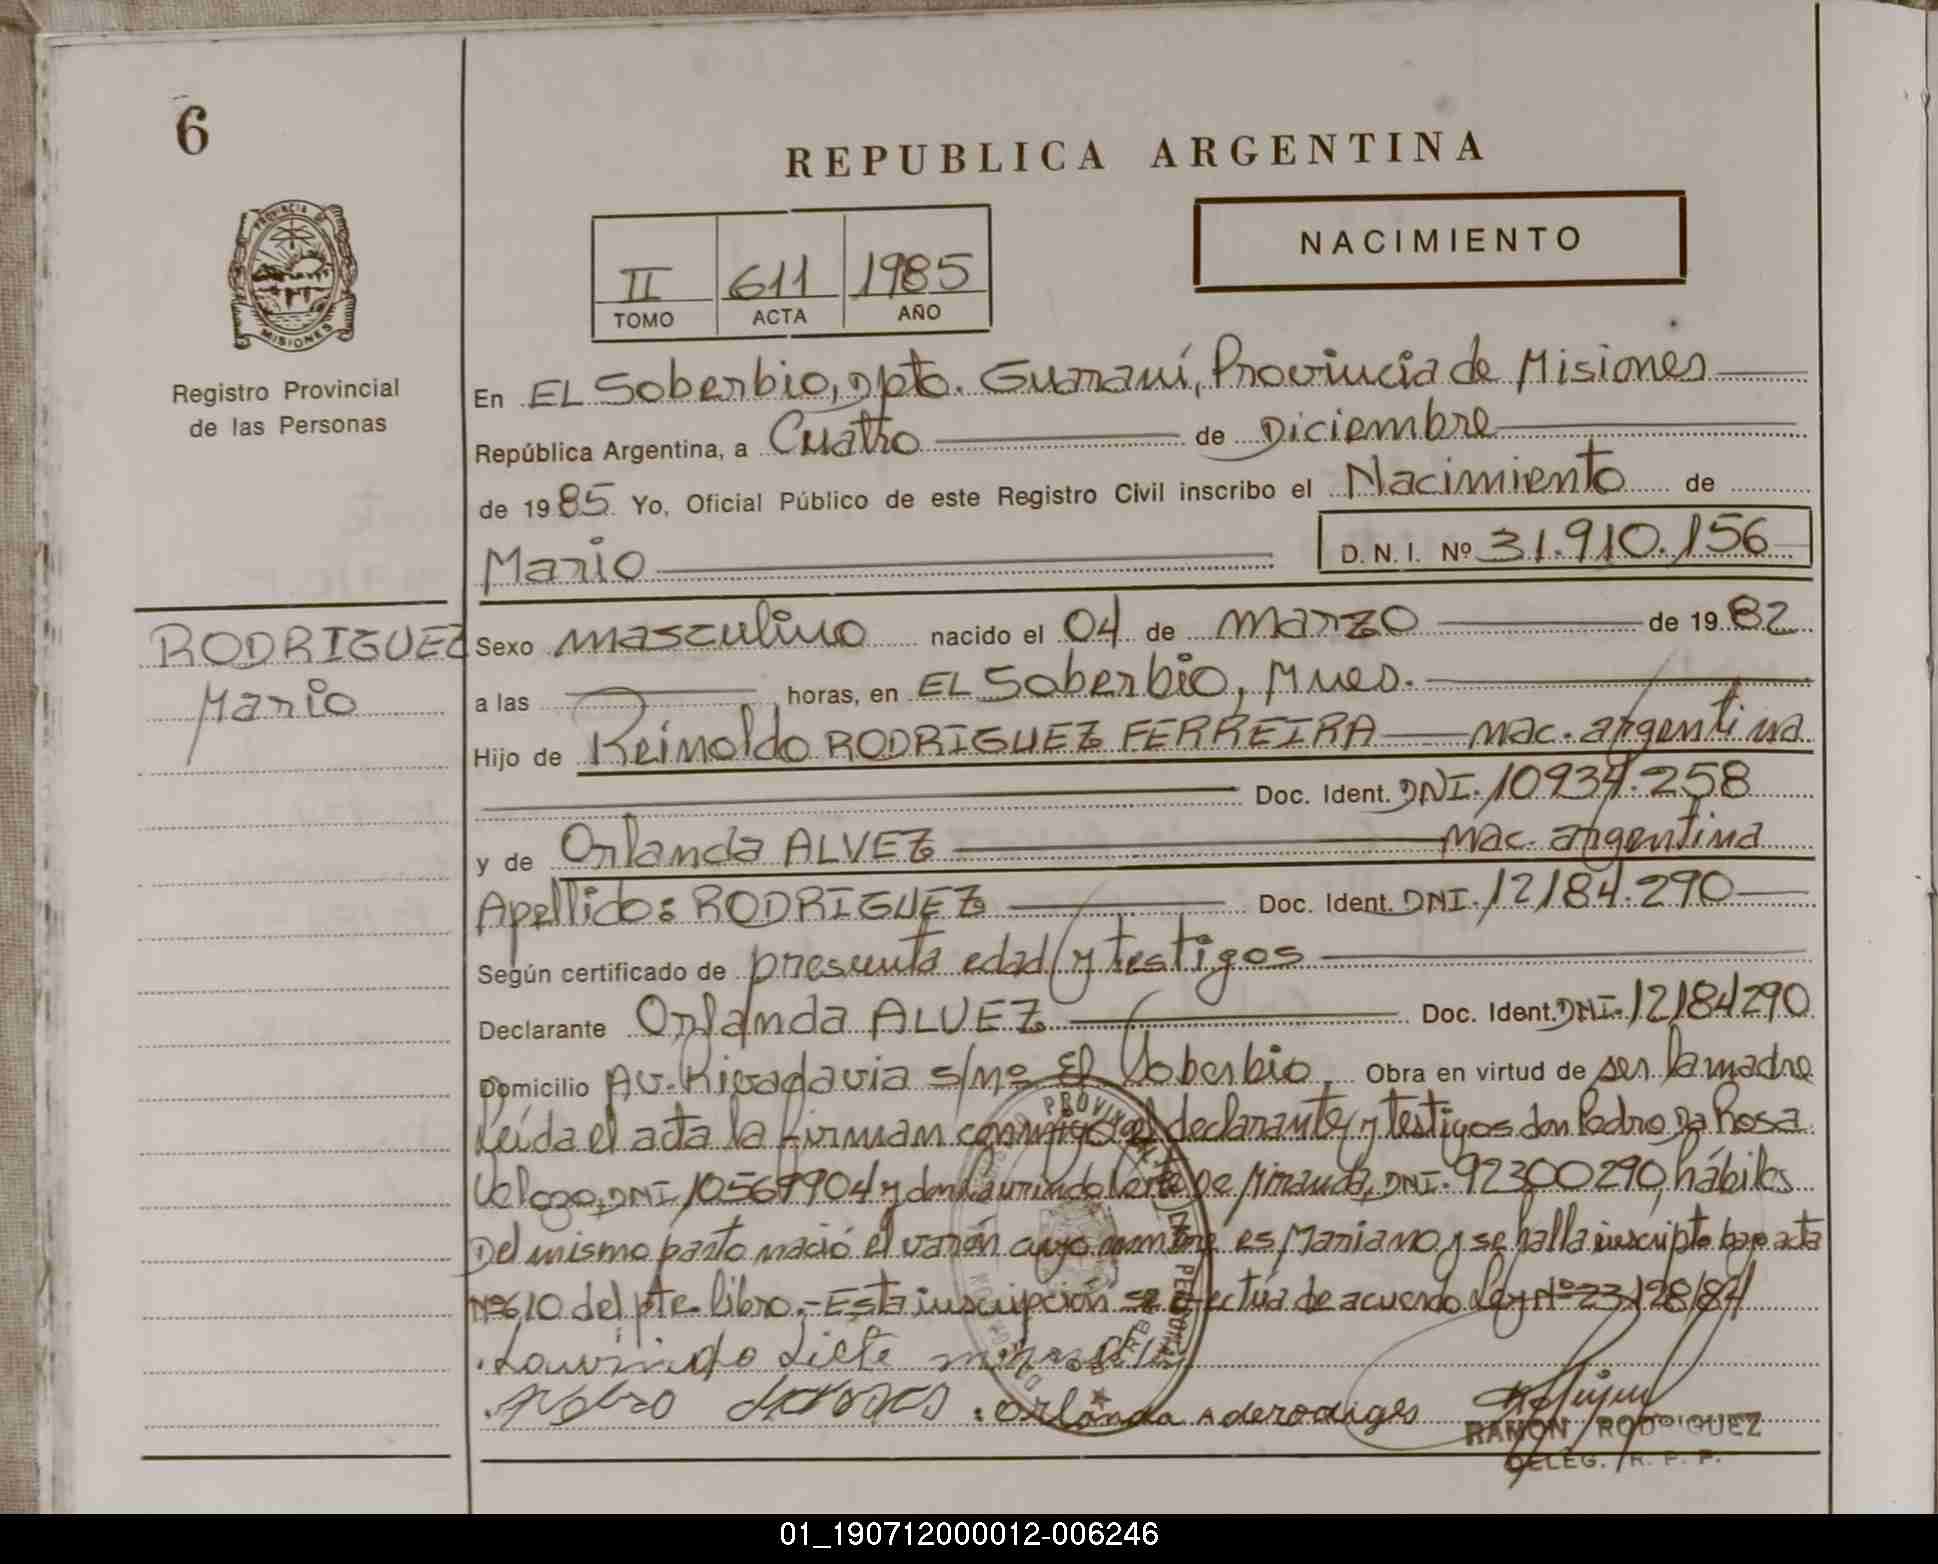 6
REPUBLICA ARGENTINA
NACIMIENTO
II 611 1985
TOMO ACTA AÑO
PROVINCIA DE MISIONES
Registro Provincial
de las Personas
En EL Soberbio, Dpto. Guaraní, Provincia de Misiones
República Argentina, a Cuatro de Diciembre
de 1985 Yo, Oficial Público de este Registro Civil inscribo el Nacimiento de
Mario D. N. I. Nº 31.910.156
RODRIGUEZ
Mario
Sexo masculino nacido el 04 de marzo de 1982
a las horas, en EL Soberbio, Mnes.
Hijo de Reinoldo RODRIGUEZ FERREIRA nac. argentina
Doc. Ident. DNI. 10934.258
y de Orlanda ALVEZ nac. argentina
Apellido: RODRIGUEZ Doc. Ident. DNI. 12184.290
Según certificado de presunta edad y testigos
Declarante Orlanda ALVEZ Doc. Ident. DNI. 12184290
Domicilio Av. Rivadavia s/nº El Soberbio, Obra en virtud de ser la madre
Leída el acta la firman conmigo el declarante y testigos don Pedro Da Rosa
Velozo, DNI 10569904 y don Laurindo De Miranda, DNI. 92300290, hábiles
Del mismo parto nació el varón cuyo nombre es Mariano y se halla inscripto bajo acta
Nº610 del pte. libro.- Esta inscripción se efectúa de acuerdo Ley Nº 23128/84
Laurindo
Orlanda A de rodriges
RAMON RODRIGUEZ
DELEG. R. P. P.
01_190712000012-006246